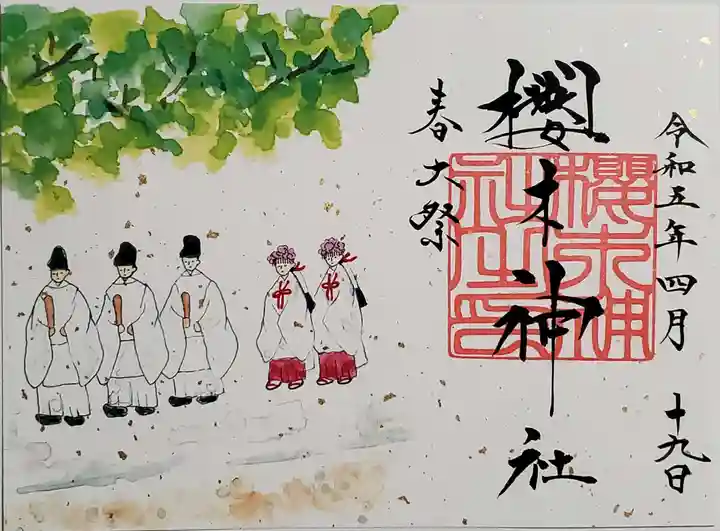 令和五年四月十九日
櫻木神社
春大祭
櫻木神社之印